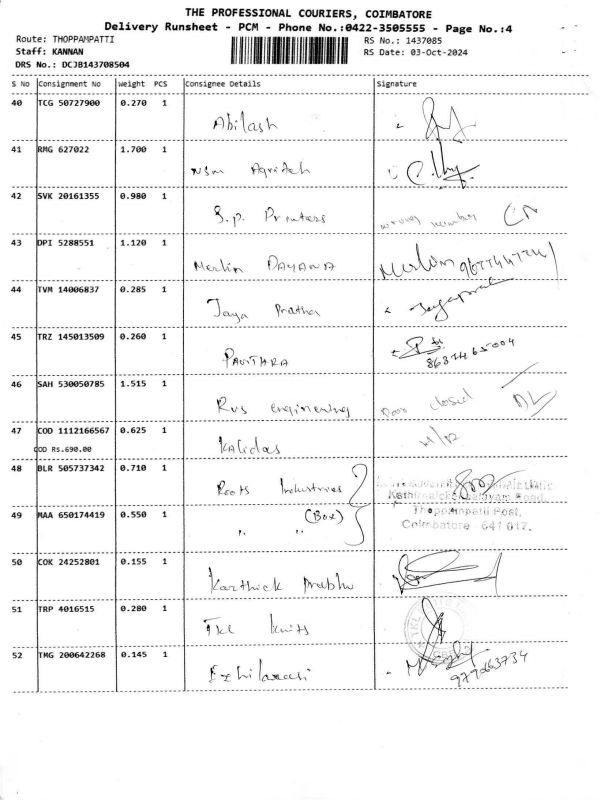 THE PROFESSIONAL COURIERS, COIMBATORE
Delivery Runsheet - PCM - Phone No.:0422-3505555 - Page No.:4
Route: THOPPAMPATTI RS No.: 1437085
Staff: KANNAN RS Date: 03-Oct-2024
DRS No.: DCJB143708504
S No Consignment No Weight PCS Consignee Details Signature
40 TCG 50727900 0.270 1
Abilash
41 RMG 627022 1.700 1
NSM Agritech
42 SVK 20161355 0.980 1
S.P. Printers wrong number
43 DPI 5288551 1.120 1
Merlin DAYANA Merlin
44 TVM 14006837 0.285 1
Jaya Pratha Jayaprat
45 TRZ 145013509 0.260 1
PAVITHRA
46 SAH 530050785 1.515 1
RVS engineering Door closed DL
47 COD 1112166567 0.625 1
COD Rs.690.00 Kalidas
48 BLR 505737342 0.710 1
Roots Industries
49 MAA 650174419 0.550 1 (Box)
" " Thoppampatti Post,
Coimbatore - 641 017.
50 COK 24252801 0.155 1
Karthick Prabhu
51 TRP 4016515 0.280 1
TKL knits
52 TMG 200642268 0.145 1
Ezhilarasi